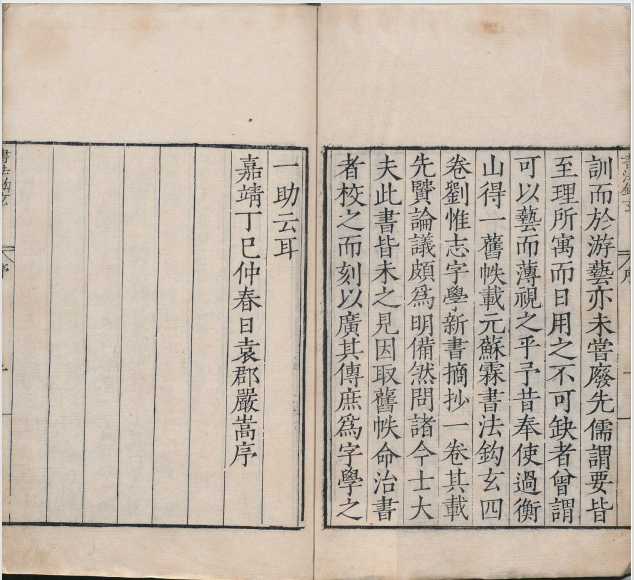 訓而於游藝亦未嘗廢先儒謂要皆
至理所寓而日用之不可缺者曾謂
可以藝而薄視之乎予昔奉使過衡
山得一舊帙載元蘇霖書法鈎玄四
卷劉惟志字學新書摘抄一卷其載
先賢論議頗為明備然問諸今士大
夫此書皆未之見因取舊帙命治書
者校之而刻以廣其傳庶為字學之
一助云耳
嘉靖丁巳仲春日袁郡嚴嵩序